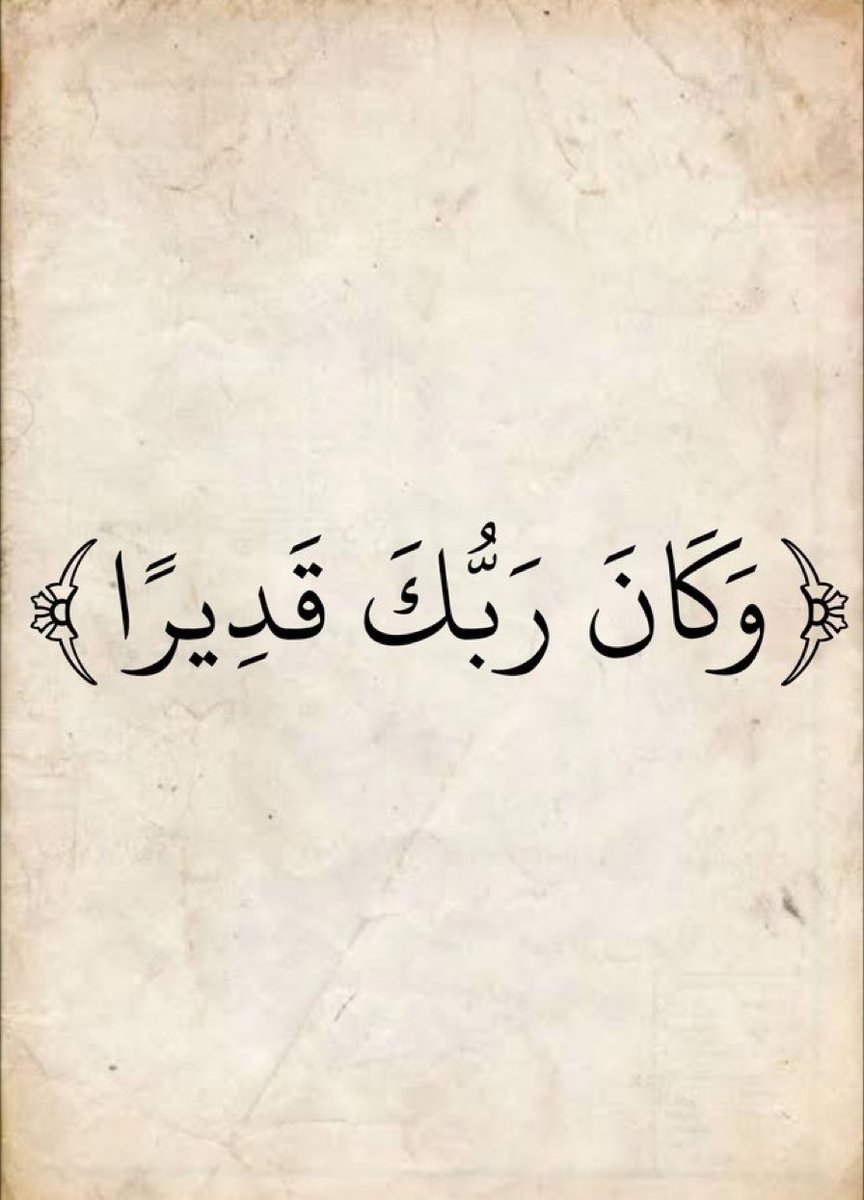 ﴿وَكَانَ رَبُّكَ قَدِيرًا﴾